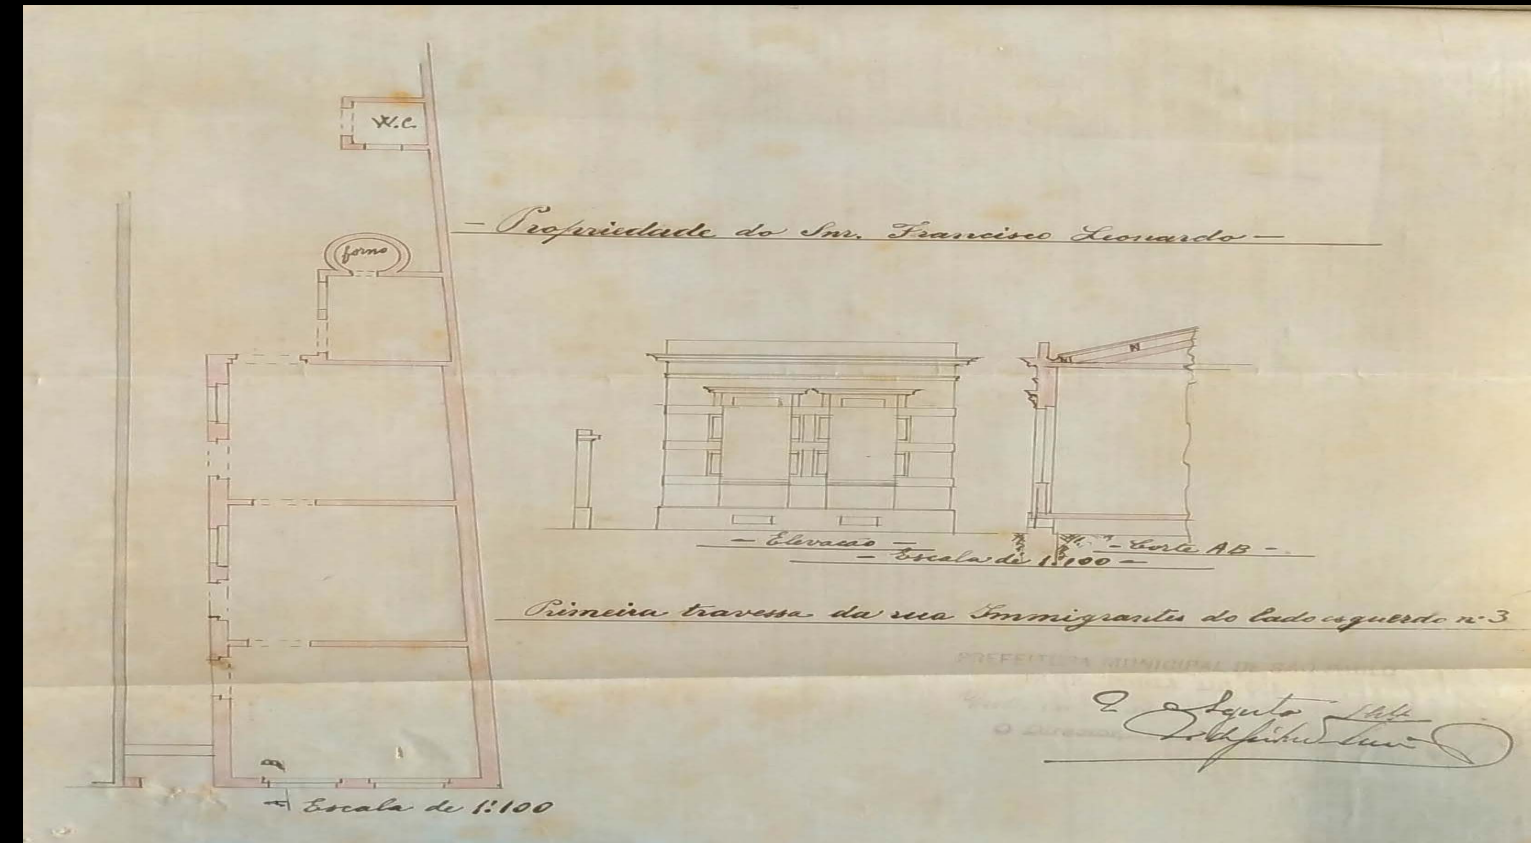 W.C.
- Propriedade do Snr. Francisco Leonardo -
forno
N
- Elevacao -
- Corte AB -
- Escala de 1:100 -
Primeira travessa da rua Immigrantes do lado esquerdo nº 3
PREFEITURA MUNICIPAL DE SÃO PAULO
Agosto
B
A
- Escala de 1:100